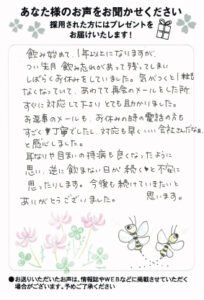 あなた様のお声をお聞かせください
採用された方にはプレゼントを
お届けいたします！
飲み始めて、1年以上になりますが、
つい毎月 飲み忘れがあって残ってしまい
しばらくお休みをしていました。気がつくと1粒も
なくなっていて、あわてて再会のメールをした所
すぐに対応して下さり とても助かりました。
お返事のメールも、お休みの時の電話の方も
すごく♥丁寧でしたし、対応も早くいい会社さんだなぁ
と感心しました。
耳なりや目まいの持病も良くなったように
思い、逆に飲まない日が続く♥と不安に
思ったりします。今後も続けていきたいと
思います。
ありがとうございました。
●お送りいただいたお声は、情報誌やWEBなどに掲載させていただく
場合がございます。予めご了承ください